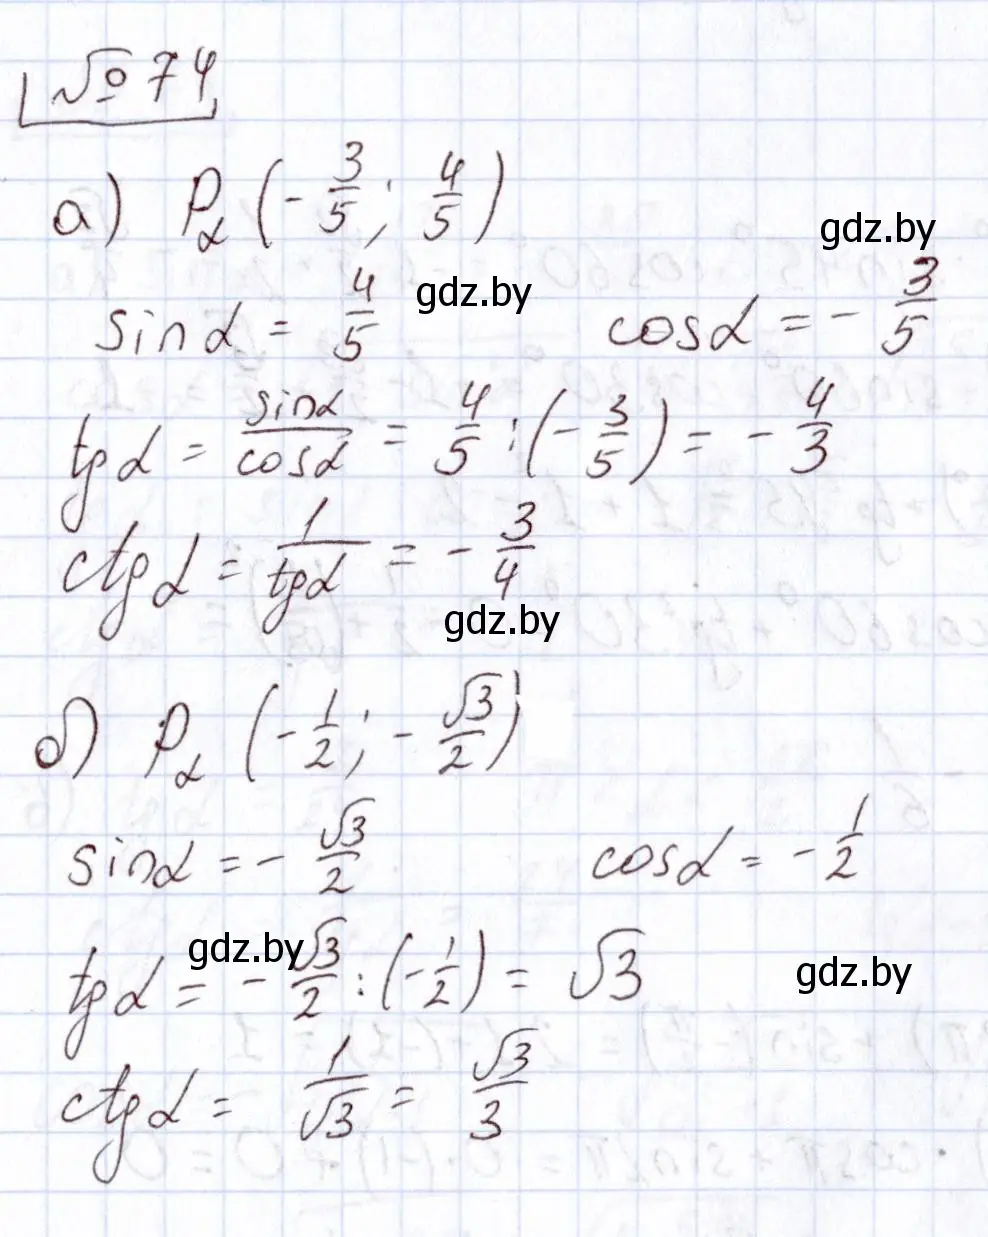 № 74
а) Pα (-3/5; 4/5)
sinα = 4/5 gdz.by cosα = -3/5 gdz.by
tgα = sinα/cosα = 4/5 : (-3/5) = -4/3
ctgα = 1/tgα = -3/4
gdz.by
б) Pα (-1/2; -√3/2)
sinα = -√3/2 cosα = -1/2
gdz.by
tgα = -√3/2 : (-1/2) = √3 gdz.by
ctgα = 1/√3 = √3/3